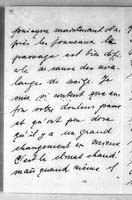 foncière maintenant d'a-
près les journaux le
passage est bien diffi-
cile à cause des ava-
lanches de neige. Je
suis si content que en-
fin votre douleur passe
et qu'ont peu dire
qu'il y a un grand
changement en mieux
C'est le climat chaud
mais quand même !